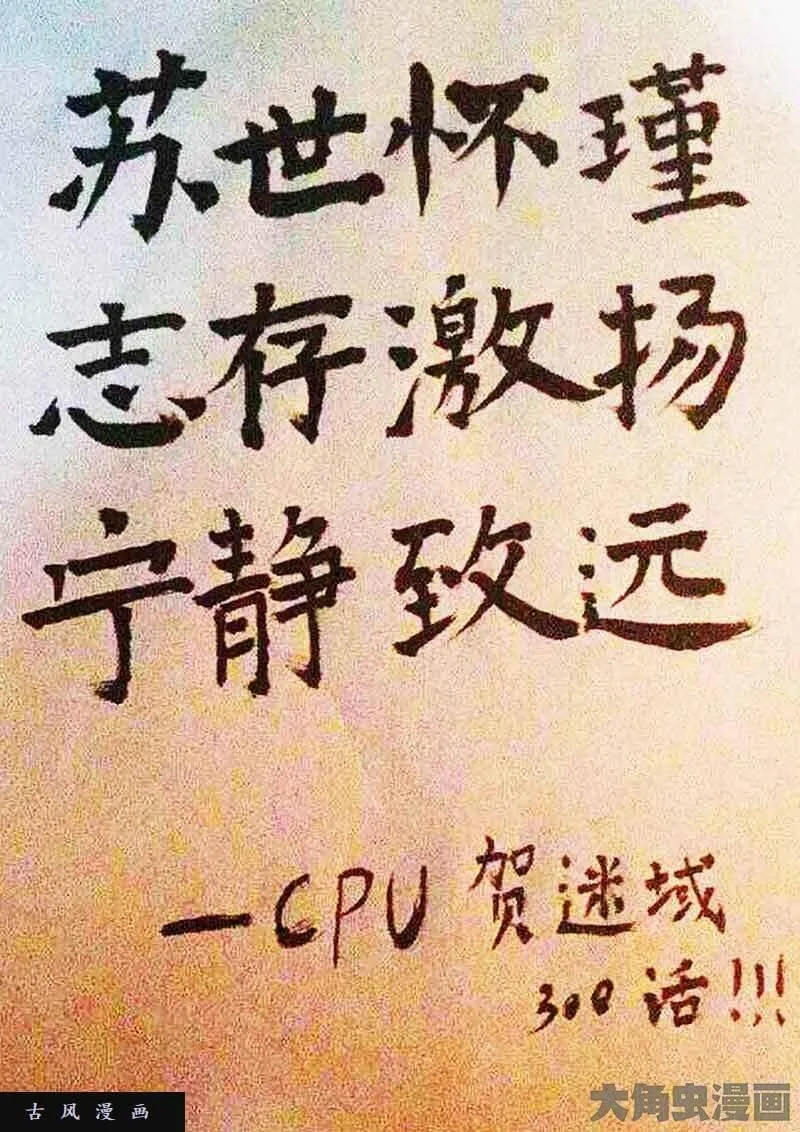 苏世怀瑾
志存激扬
宁静致远
—CPU 贺迷域
300话!!!
古风漫画
大角虫漫画